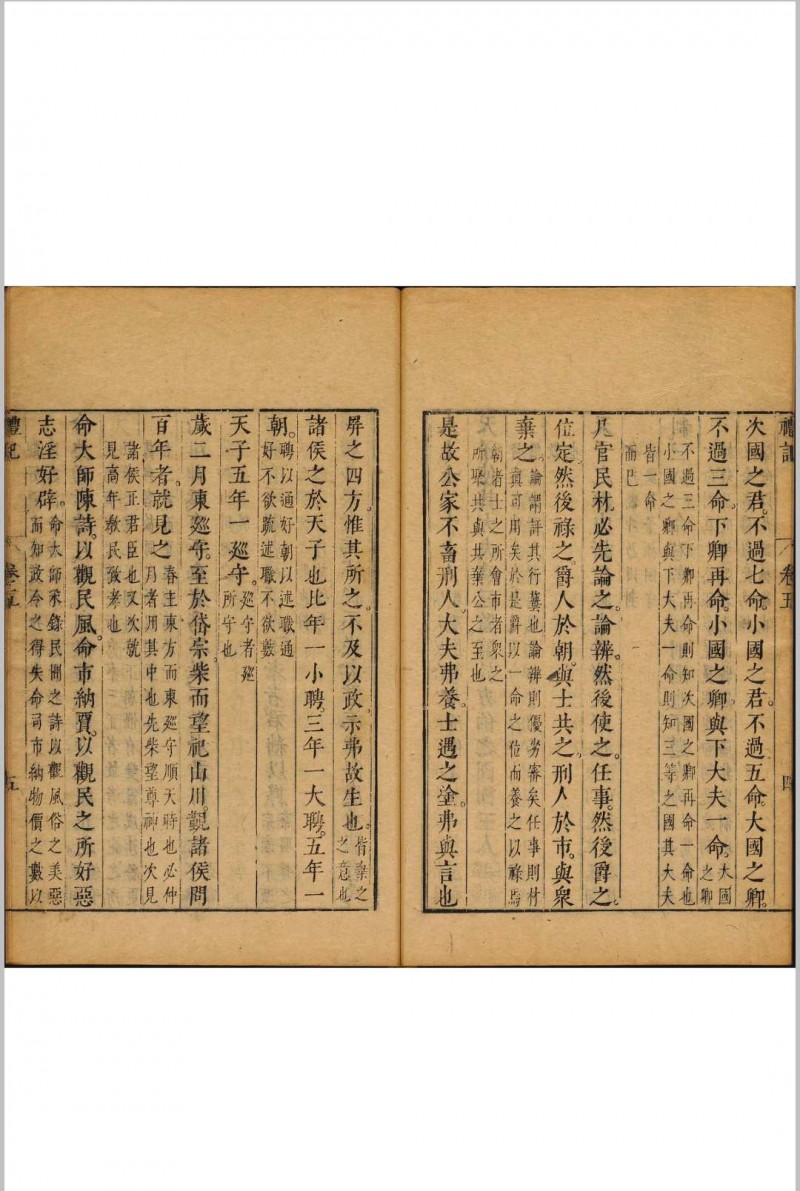 禮記 卷五 四
次國之君。不過七命。小國之君。不過五命。大國之卿。
不過三命。下卿再命。小國之卿與下大夫一命。大國之卿
不過三命下卿再命則知次國之卿再命一命也
小國之卿與下大夫一命則知三等之國其大夫
皆一命
而巳
凡官民材。必先論之。論辨然後使之。任事。然後爵之。
位定然後祿之。爵人於朝。與士共之。刑人於市。與衆
棄之。論謂評其行藝也論辨則優劣審矣任事則材
眞可用矣於是爵以一命之位而養之以祿焉
朝者士之所會市者衆之
所聚共與共棄公之至也
是故公家不畜刑人。大夫弗養。士遇之塗。弗與言也
屏之四方。惟其所之。不及以政。示弗故生也。皆棄之
之意也
諸侯之於天子也比年一小聘。三年一大聘。五年一
朝。聘以通好朝以述職通
好不欲疏述職不欲數
天子五年一廵守。廵守者廵
所守也
歲二月東廵守。至於岱宗。柴而望祀山川。覲諸侯問
百年者。就見之 春主東方而東廵守順天時也必仲
月者用其中也先柴望尊神也次見
諸侯正君臣也又次就
見高年敎民敬孝也
命大師陳詩。以觀民風。命市納賈。以觀民之所好惡
志淫好辟。命大師采錄民間之詩以觀風俗之美惡
而知政令之得失命司市納物價之數以
禮記 卷五 五